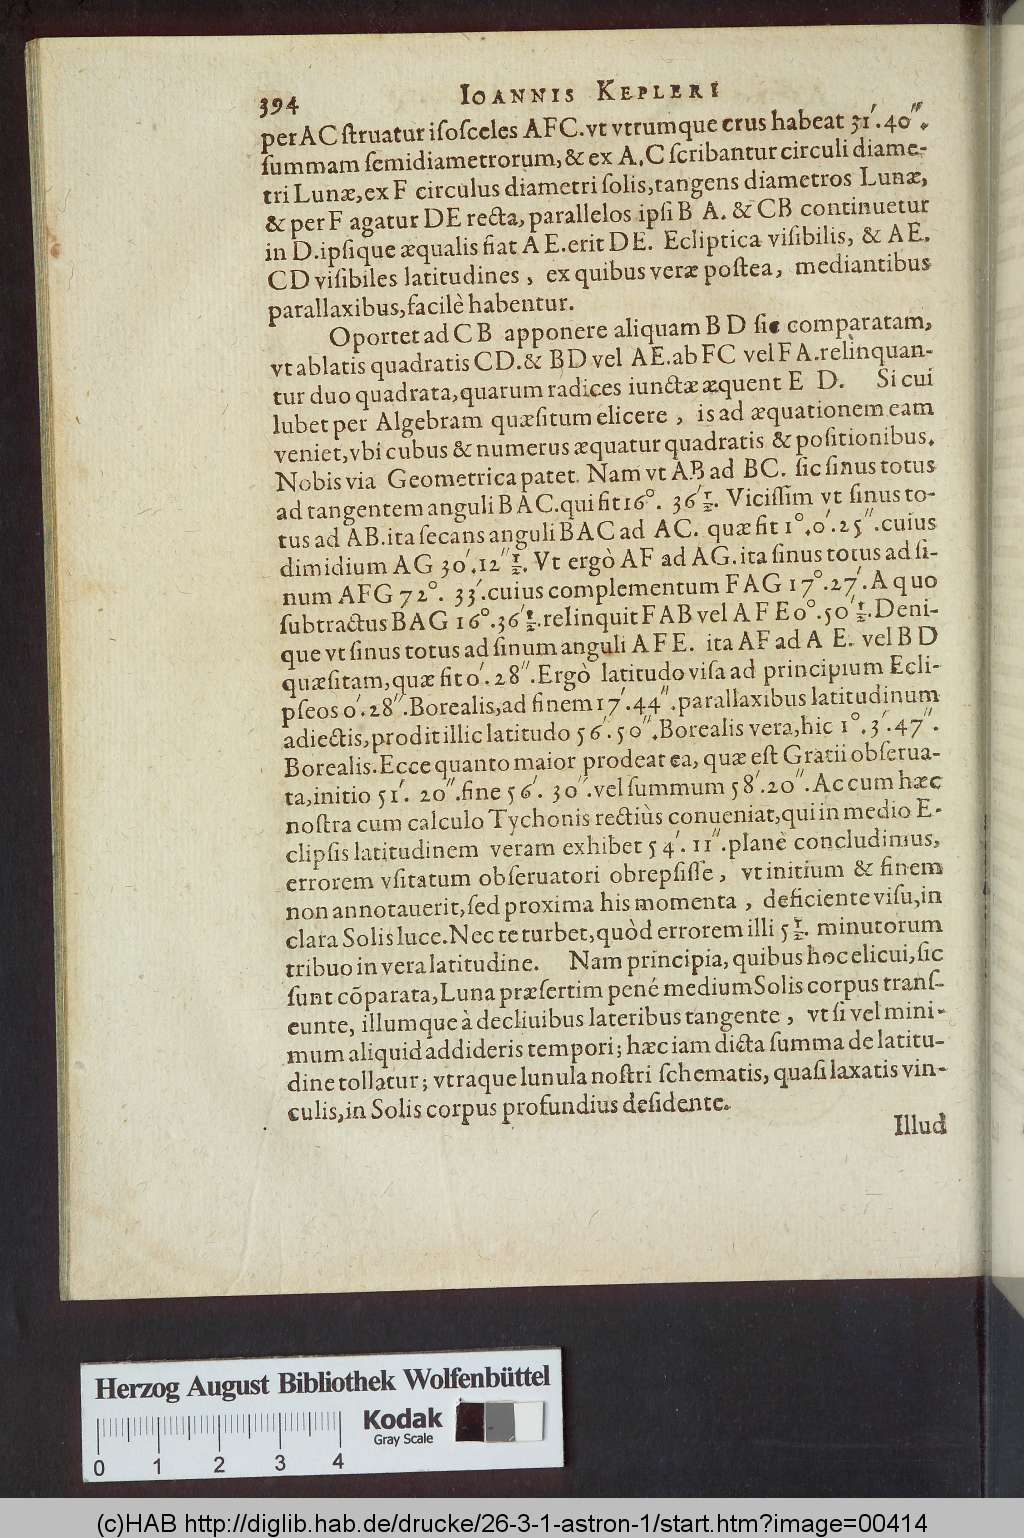 394
IOANNIS KEPLERI
per AC ſtruatur iſoſceles AFC. vt vtrumque crus habeat 31′. 40″.
ſummam ſemidiametrorum, & ex A, C ſcribantur circuli diame-
tri Lunæ, ex F circulus diametri ſolis, tangens diametros Lunæ,
& per F agatur DE recta, parallelos ipſi B A. & CB continuetur
in D. ipſique æqualis fiat A E. erit DE. Ecliptica viſibilis, & AE,
CD viſibiles latitudines, ex quibus veræ poſtea, mediantibus
parallaxibus, facilè habentur.
Oportet ad C B apponere aliquam B D ſic comparatam,
vt ablatis quadratis CD. & BD vel AE. ab FC vel FA. relinquan-
tur duo quadrata, quarum radices iunctæ æquent E D. Si cui
lubet per Algebram quæſitum elicere, is ad æquationem eam
veniet, vbi cubus & numerus æquatur quadratis & poſitionibus.
Nobis via Geometrica patet. Nam vt AB ad BC. ſic ſinus totus
ad tangentem anguli BAC. qui fit 16°. 36′ ½. Viciſſim vt ſinus to-
tus ad AB. ita ſecans anguli BAC ad AC. quæ fit 1°. 0′. 25″. cuius
dimidium AG 30′. 12″ ½. Vt ergò AF ad AG. ita ſinus totus ad ſi-
num AFG 72°. 33′. cuius complementum FAG 17°. 27′. A quo
ſubtractus BAG 16°. 36′ ½. relinquit FAB vel AFE 0°. 50′ ½. Deni-
que vt ſinus totus ad ſinum anguli A F E. ita AF ad A E. vel B D
quæſitam, quæ fit 0′. 28″. Ergò latitudo viſa ad principium Ecli-
pſeos 0′. 28″. Borealis, ad finem 17′. 44″. parallaxibus latitudinum
adiectis, prodit illic latitudo 56′. 50″. Borealis vera, hic 1°. 3′. 47″.
Borealis. Ecce quanto maior prodeat ea, quæ eſt Gratii obſerua-
ta, initio 51′. 20″. fine 56′. 30″. vel ſummum 58′. 20″. Ac cum hæc
noſtra cum calculo Tychonis rectiùs conueniat, qui in medio E-
clipſis latitudinem veram exhibet 54′. 11″. planè concludimus,
errorem vſitatum obſeruatori obrepſiſſe, vt initium & finem
non annotauerit, ſed proxima his momenta, deficiente viſu, in
clara Solis luce. Nec te turbet, quòd errorem illi 5 ½. minutorum
tribuo in vera latitudine. Nam principia, quibus hoc elicui, ſic
ſunt cõparata, Luna præſertim pené medium Solis corpus tranſ-
eunte, illumque à decliuibus lateribus tangente, vt ſi vel mini-
mum aliquid addideris tempori; hæc iam dicta ſumma de latitu-
dine tollatur; vtraque lunula noſtri ſchematis, quaſi laxatis vin-
culis, in Solis corpus profundius deſidente.
Illud
Herzog August Bibliothek Wolfenbüttel
Kodak
Gray Scale
0 1 2 3 4
(c)HAB http://diglib.hab.de/drucke/26-3-1-astron-1/start.htm?image=00414